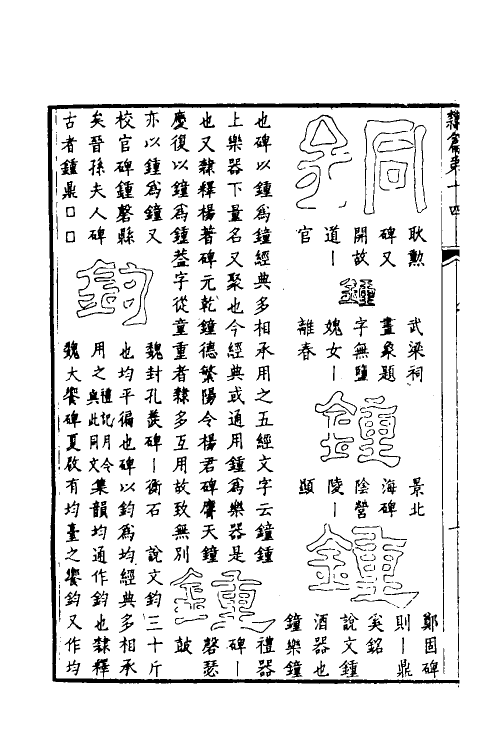 隸篇第十四
銅
耿勳
碑又
開故
道｜
官
鍾
武梁祠
畫象題
字無鹽
媿女｜
離春
鍾
景北
海碑
陰營
陵｜
顯
鍾
鄭固碑
則｜鼎
奚銘
說文鍾
酒器也
鐘樂鐘
也碑以鍾為鐘經典多相承用之五經文字云鐘鍾
上樂器下量名又聚也今經典或通用鍾為樂器是
也又隸釋楊著碑元乾鐘德繁陽令楊君碑膺天鐘
慶復以鐘為鍾葢字從童重者隸多互用故致無別
鍾
禮器
碑｜
磬瑟
鼓
亦以鍾為鐘又
校官碑鍾磬縣
矣晉孫夫人碑
古者鍾鼎□□
鈞
魏封孔羡碑｜衡石 說文鈞三十斤
也均平徧也碑以鈞為均經典多相承
用之禮記月令與此同文集韻均通作鈞也隸釋
魏大饗碑夏啟有均臺之饗鈞又作均